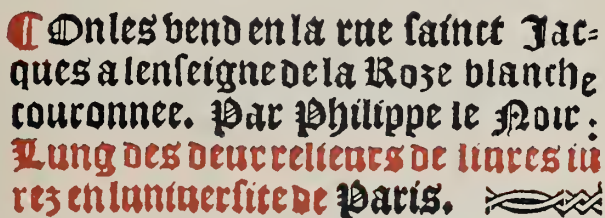 ¶ Onles vend en la rue sainct Jac⸗
ques a lenseigne de la Roze blanche
couronnee. Par Philippe le Noir:
Lung des deux relieurs de liures iu
rez en luniuersite de Paris.